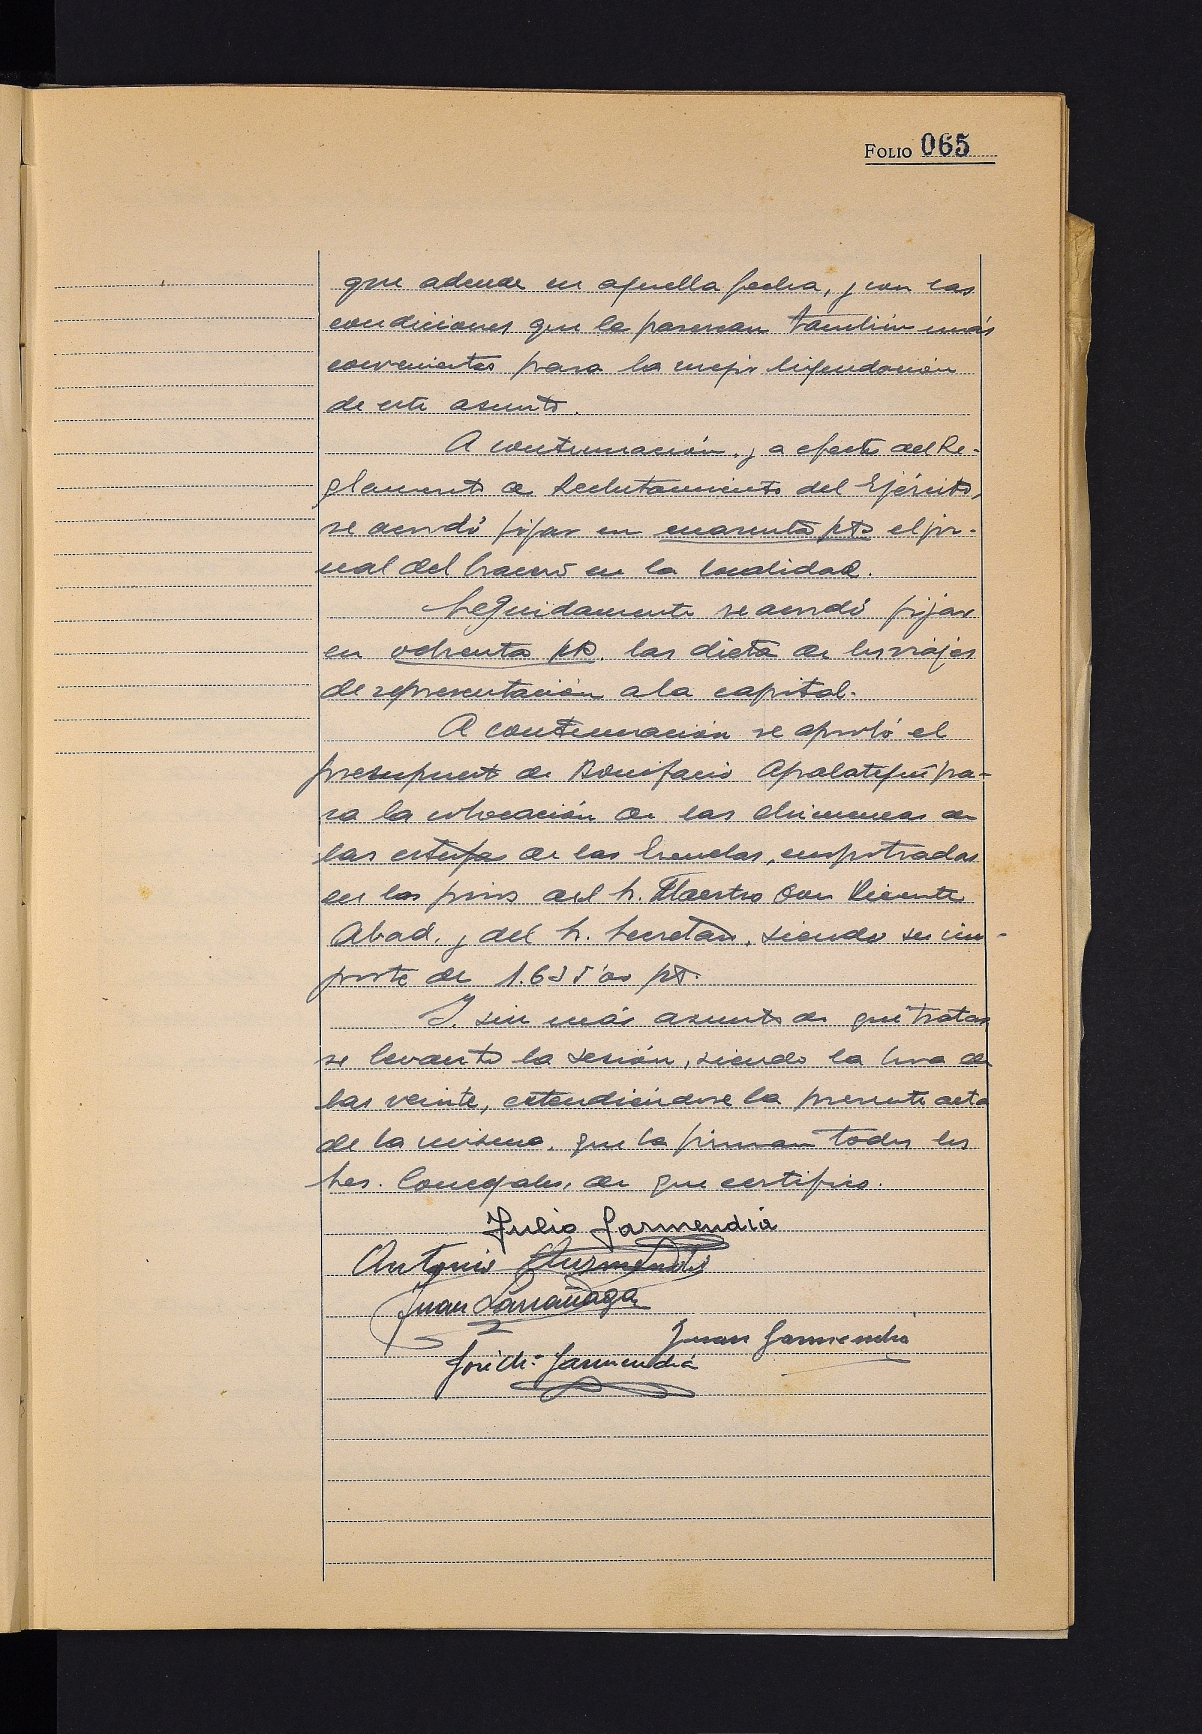 FOLIO 065
que adeude en aquella fecha, y con las
condiciones que le parezcan también más
convenientes para la mejor liquidación
de este asunto.
A continuación, y a efectos del Re-
glamento de Reclutamiento del Ejército,
se acordó fijar en cuarenta pts el jor-
nal del bracero en la localidad.
Seguidamente se acordó fijar
en ochenta pts. las dietas de los viajes
de representación a la capital.
A continuación se aprobó el
presupuesto de Bonifacio Apalategui pa-
ra la colocación de las chimeneas de
las estufas de las Escuelas, empotradas
en los pisos del Sr. Maestro Don Vicente
Abad, y del Sr. Secretario, siendo su im-
porte de pts.
Y sin más asuntos de que tratar
se levantó la sesión, siendo la hora de
las veinte, extendiéndose la presente acta
de la misma, que la firman todos los
Sres. Concejales, de que certifico.
Julio Garmendia
Antonio
Juan Larrañaga
Juan Garmendia
José Mª Garmendia